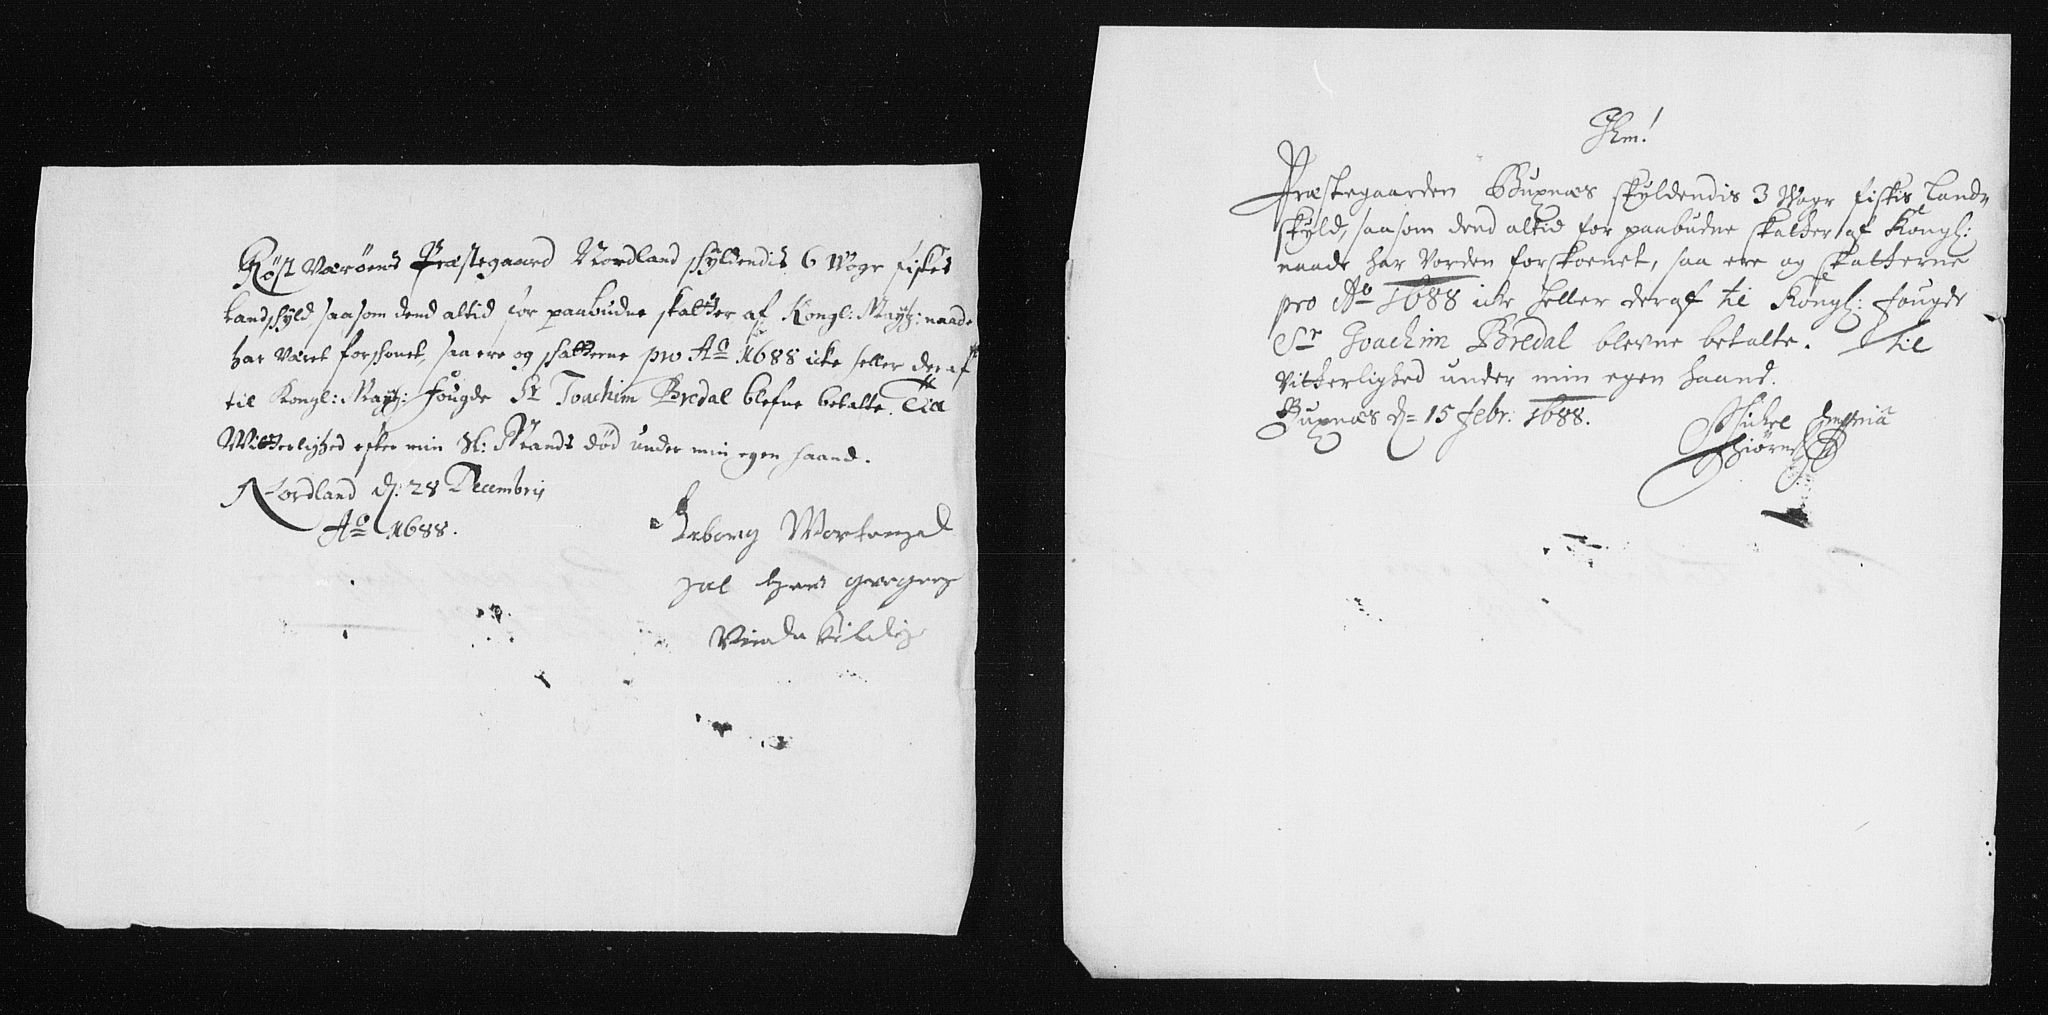 Röst Værøens Præstegaard Nordland skyldendis 6 Wogr fiskes
Landskyld saasom dend altid for paabudne skatter af Kongl: Mayt: naade
har Været forskonet, saa ere og skatterne pro Ao 1688 icke heller deraf
til Kongl: Mayt: fougde Sr Joachim Bredal blefne betalte. Till
Witterlighed efter min Sl: Mands død under min egen haand.
Nordland d: 28 Decembris
Ao 1688.
Præstegaarden Buxnæs skyldendis 3 Wogr fiskis Land-
skyld, saasom dend altid for paabudne skatter af Kongl:
naade har Vorden forskoenet, saa ere og skatterne
pro Ao 1688 icke heller deraf til Kongl: fougde
Sr Joachim Bredal blevne betalte. Til
Vitterlighed under min egen haand.
Buxnæs d= 15 febr: 1688.